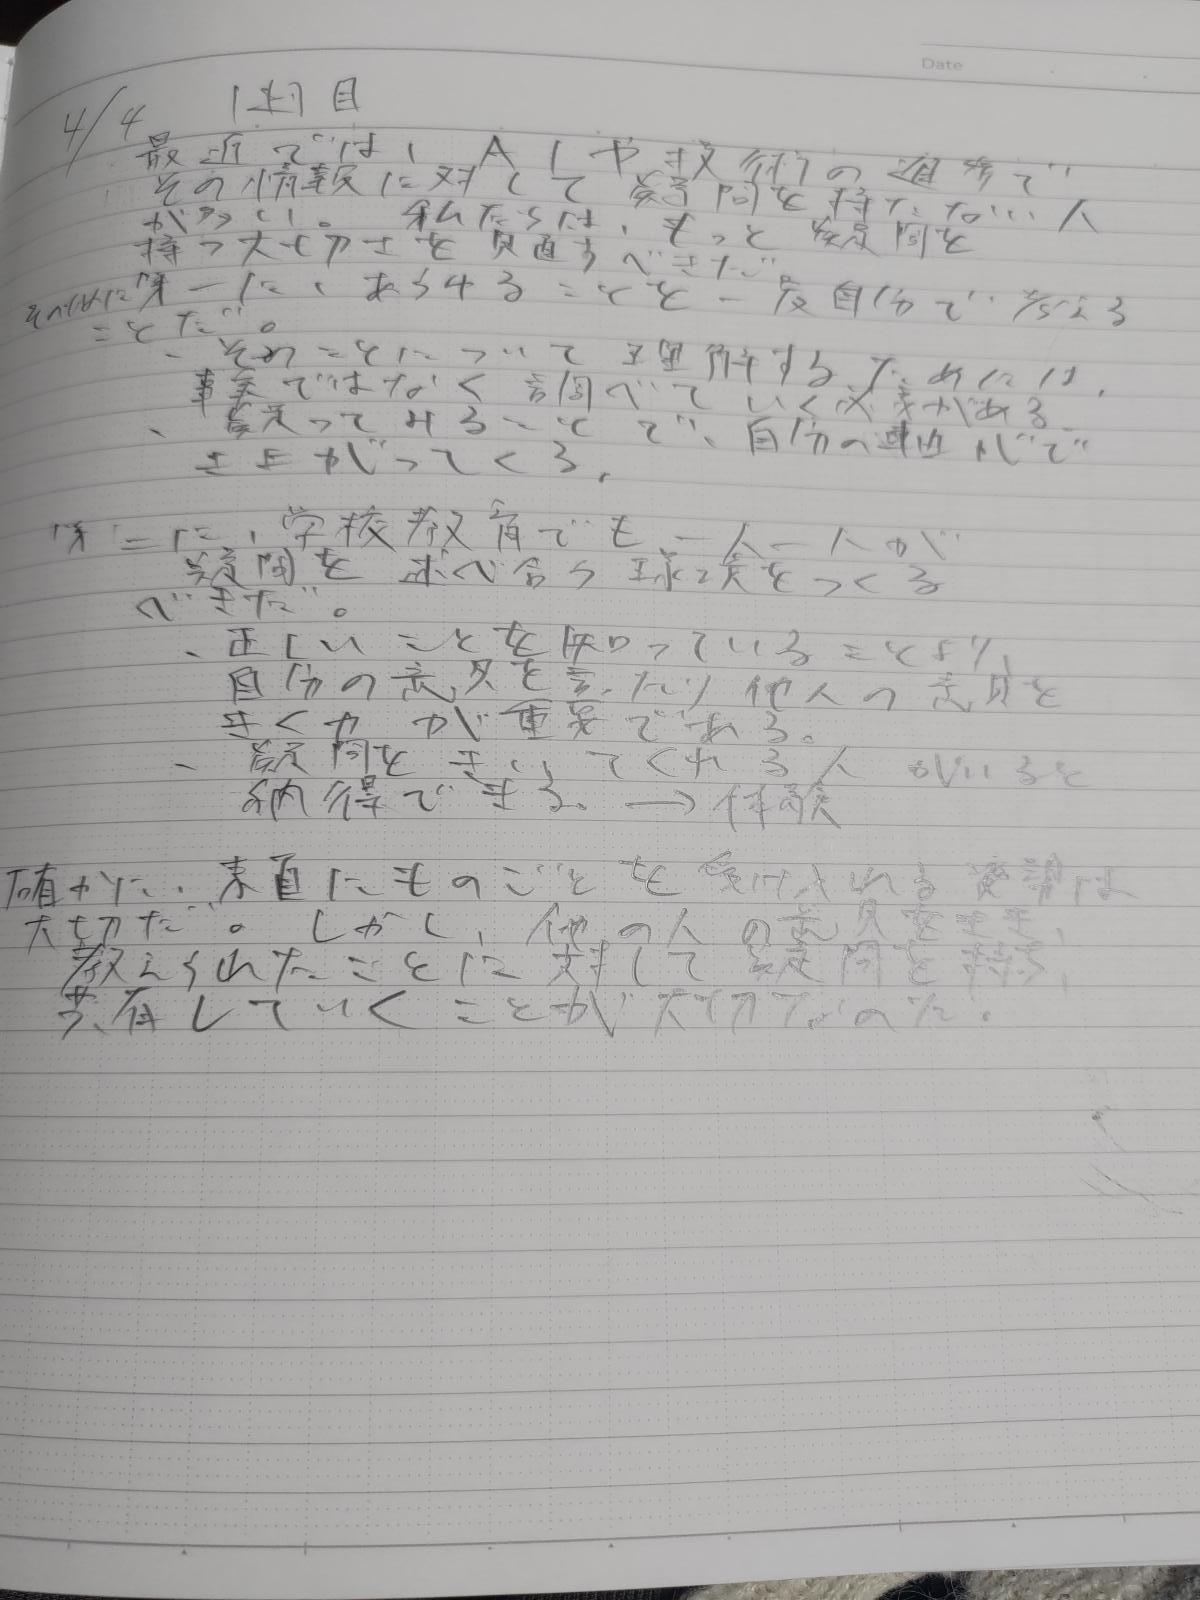 Date
4/4 1週目
最近では、AIや技術の進歩で
その情報に対して疑問を持たない人
が多い。私たちは、もっと疑問を
持つ大切さを見直すべきだ。
そのために第一に、あらゆることを一度自分で考える
ことだ。
、それことについて理解するためには、
事実ではなく調べていく必要がある
、疑ってみることで、自分の理由がで
きあがってくる。
第二に、学校教育でも一人一人が
疑問を述べ合う環境をつくる
べきだ。
、正しいことを知っていることより、
自分の意見を言ったり他人の意見を
きくかが重要である。
、疑問をきいてくれる人がいると
納得できる。→体験
確かに、素直にものごとを受け入れる姿勢は
大切だ。しかし、他の人の意見を
教えられたことに対して疑問を持ち、
していくことが大切なのだ。